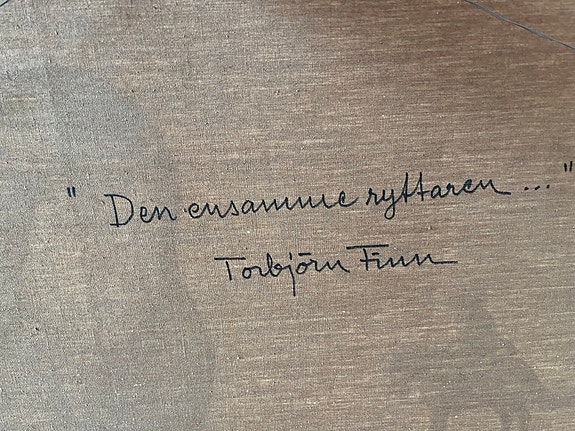 "Den ensamme ryttaren ..."
Torbjörn Finn